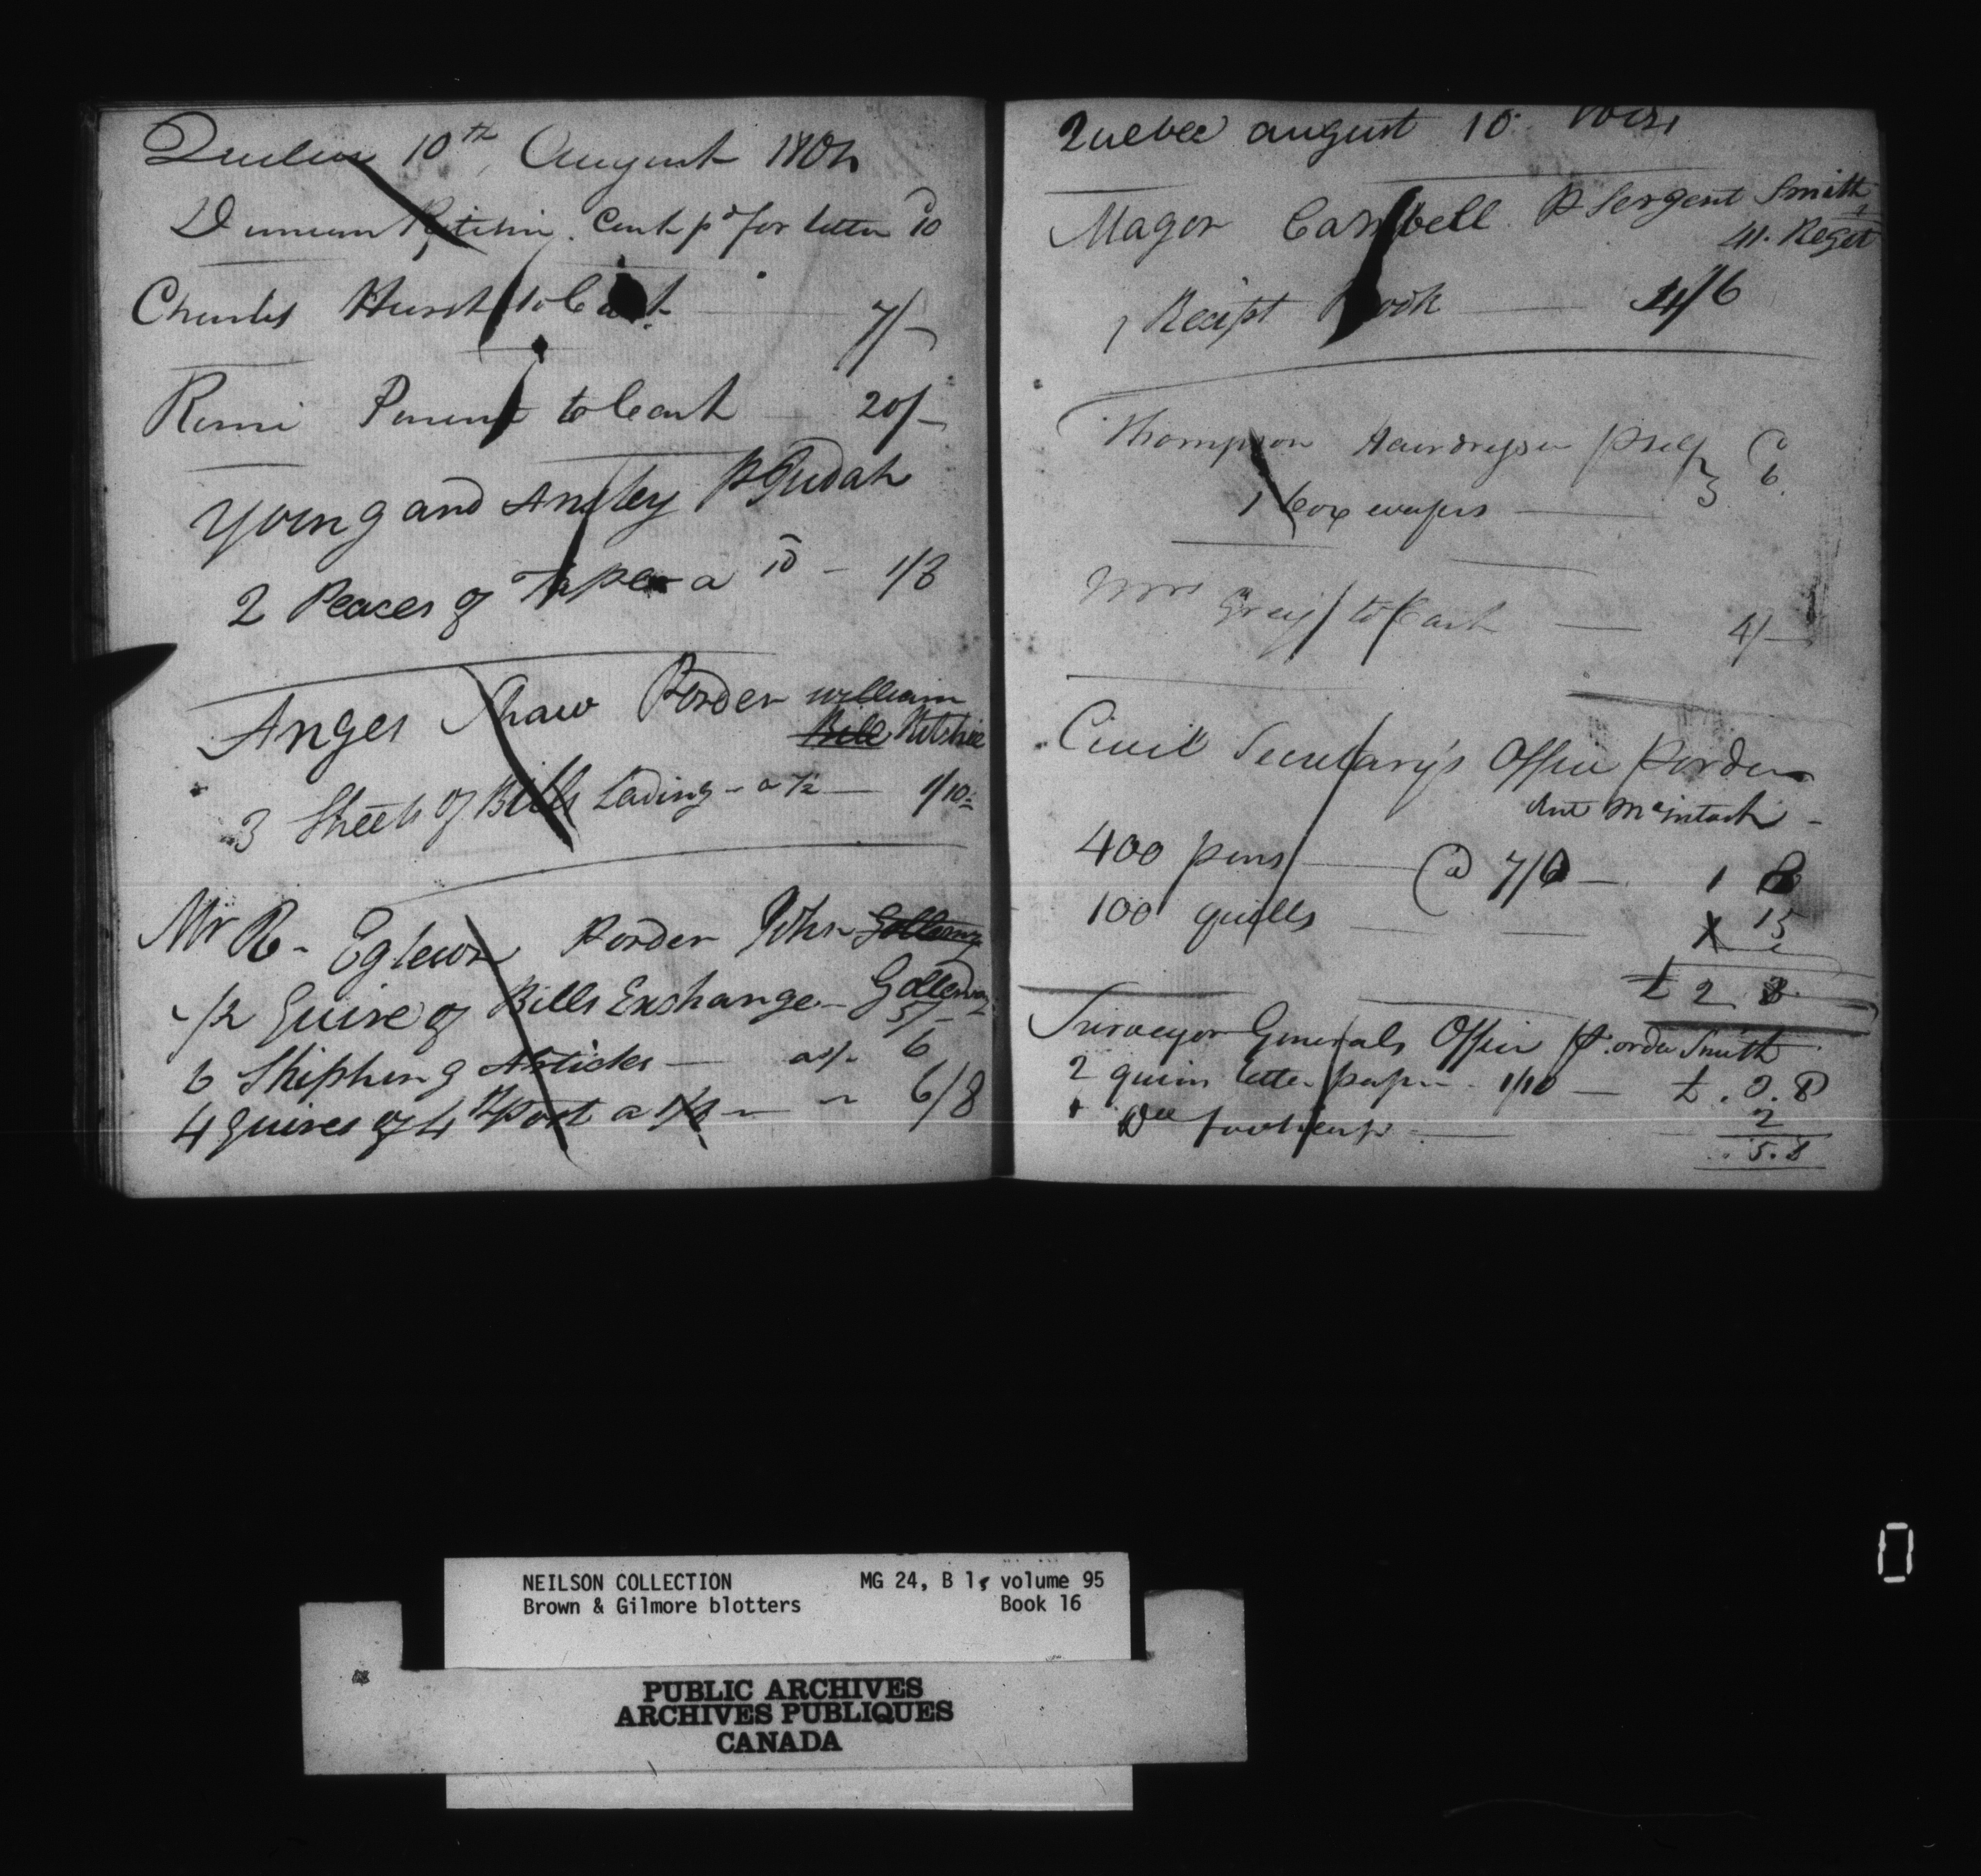 Quebec 10th August 1802
Duncan Ritchie Cash pd for letter 10
Charles Hurst to Cash 7/-
Remi Parent to Cash 20/-
Young and Ansley P Judah
2 Peaces of Tape a 10 - 1/8
Anges Shaw P order william
Bill Ritshie
3 Sheets of Bills Lading - a 7½ - 1/10½
Mr R - Eglewn P order John Gollerny
1/2 Quire of Bills Exchange - Golleway
5/-
6 Shiphing Articles - a 1/- 6
4 Quires of 4to Post a 1/8 - 6/8
Quebec august 10
Magor Cambell P Sergent Smith
41. Reget
1 Recipt Book 4/6
Thompson Hairdresser P self
1 box wafers 3 6
Mrs Gray to Cash 4/-
Civil Secretary's Office P order
McIntosh -
400 pens @ 7/6 - 1 8
100 quills 15
£ 2 3
Surveyor Generals Office P. order Smith
2 quires letter paper 1/10 - £. 3. 8
1 Do foolscap - 2
5. 8
NEILSON COLLECTION MG 24, B 1, volume 95
Brown & Gilmore blotters Book 16
PUBLIC ARCHIVES
ARCHIVES PUBLIQUES
CANADA